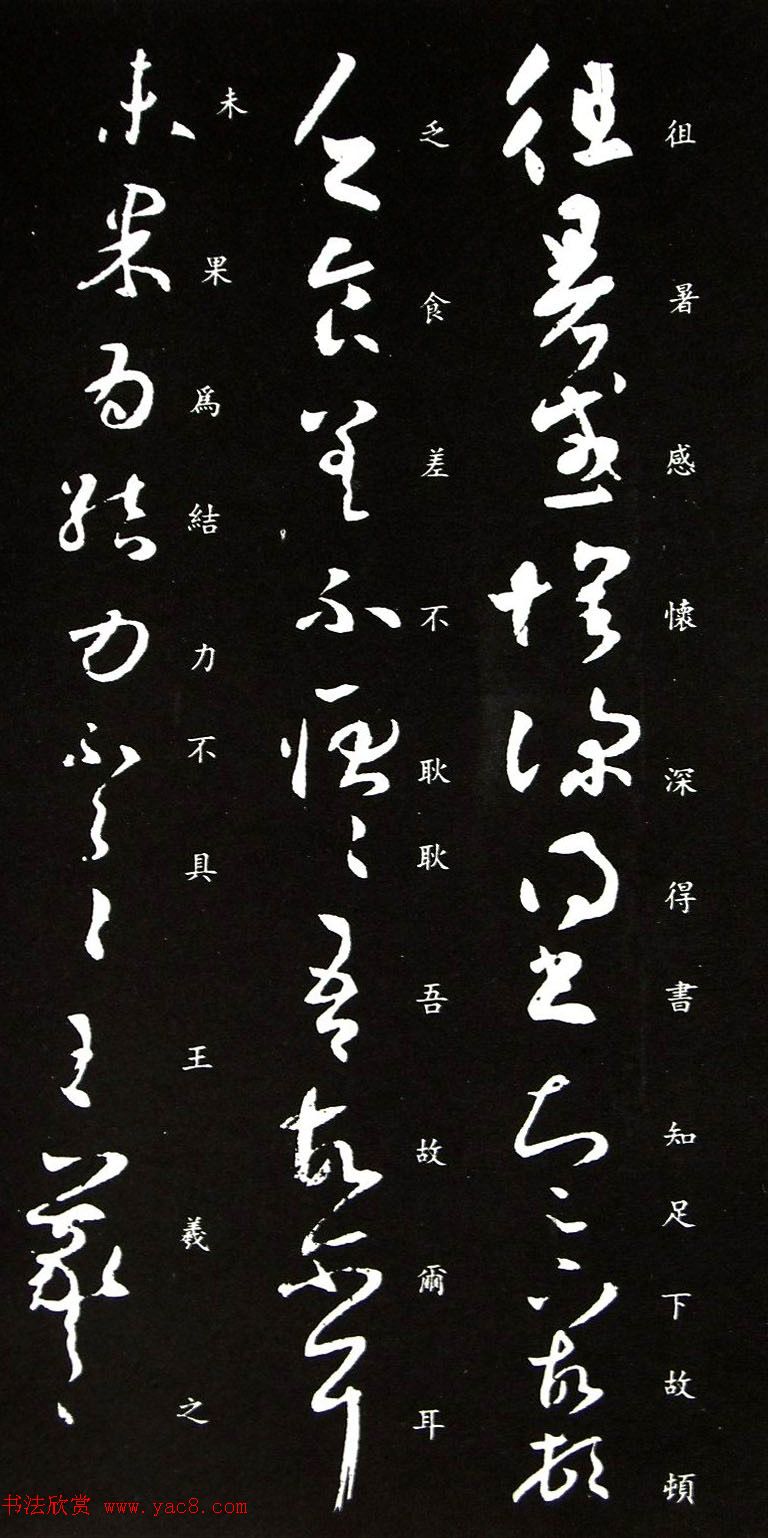 徂暑感懷深得書知足下故頓
乏食差不耿耿吾故爾耳
未果為結力不具王羲之
书法欣赏 www.yac8.com